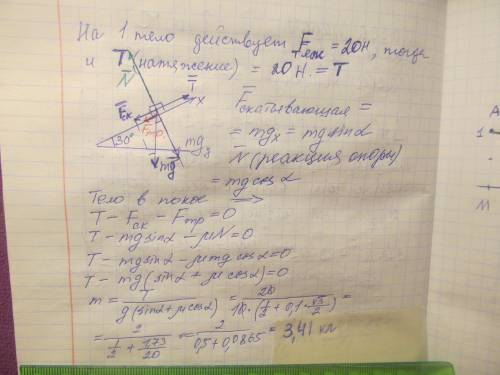 На 1 тело действует Fтяж = 20Н, тогда
и T (натяжение) = 20 Н = T
N
T
x
Fск
Fтр
30°
mg
mgy
Fскатывающая =
= mgx = mg sinα
N (реакция опоры)
= mg cosα
Тело в покое =>
T - Fск - Fтр = 0
T - mg sinα - μN = 0
T - mg sinα - μmg cosα = 0
T - mg (sinα + μ cosα) = 0
m = T / g(sinα + μ cosα) = 20 / 10·(1/2 + 0,1·√3/2) =
= 2 / (1/2 + 1,73/20) = 2 / (0,5 + 0,0865) = 3,41 кг